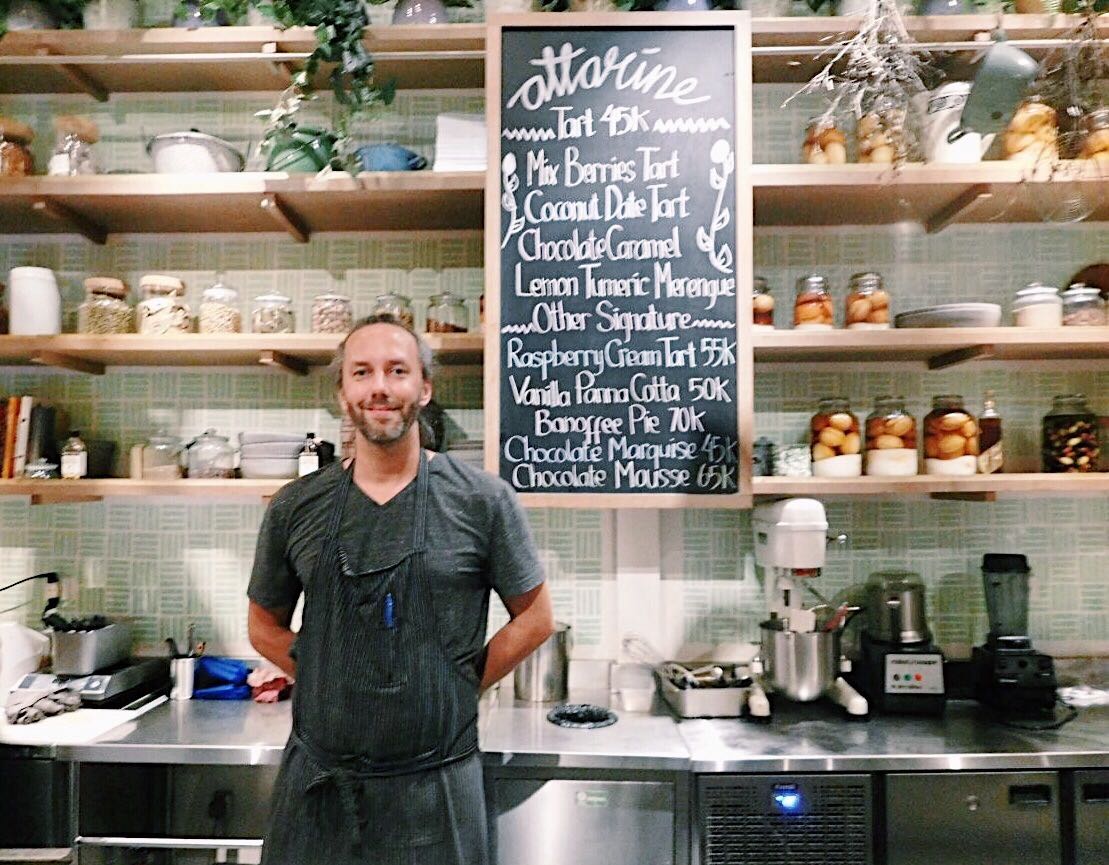 attarine
Tart 45K
Mix Berries Tart
Coconut Date Tart
Chocolate Caramel
Lemon Tumeric Merengue
Other Signature
Raspberry Cream Tart 55K
Vanilla Panna Cotta 50K
Banoffee Pie 70K
Chocolate Marquise 45K
Chocolate Mousse 65K